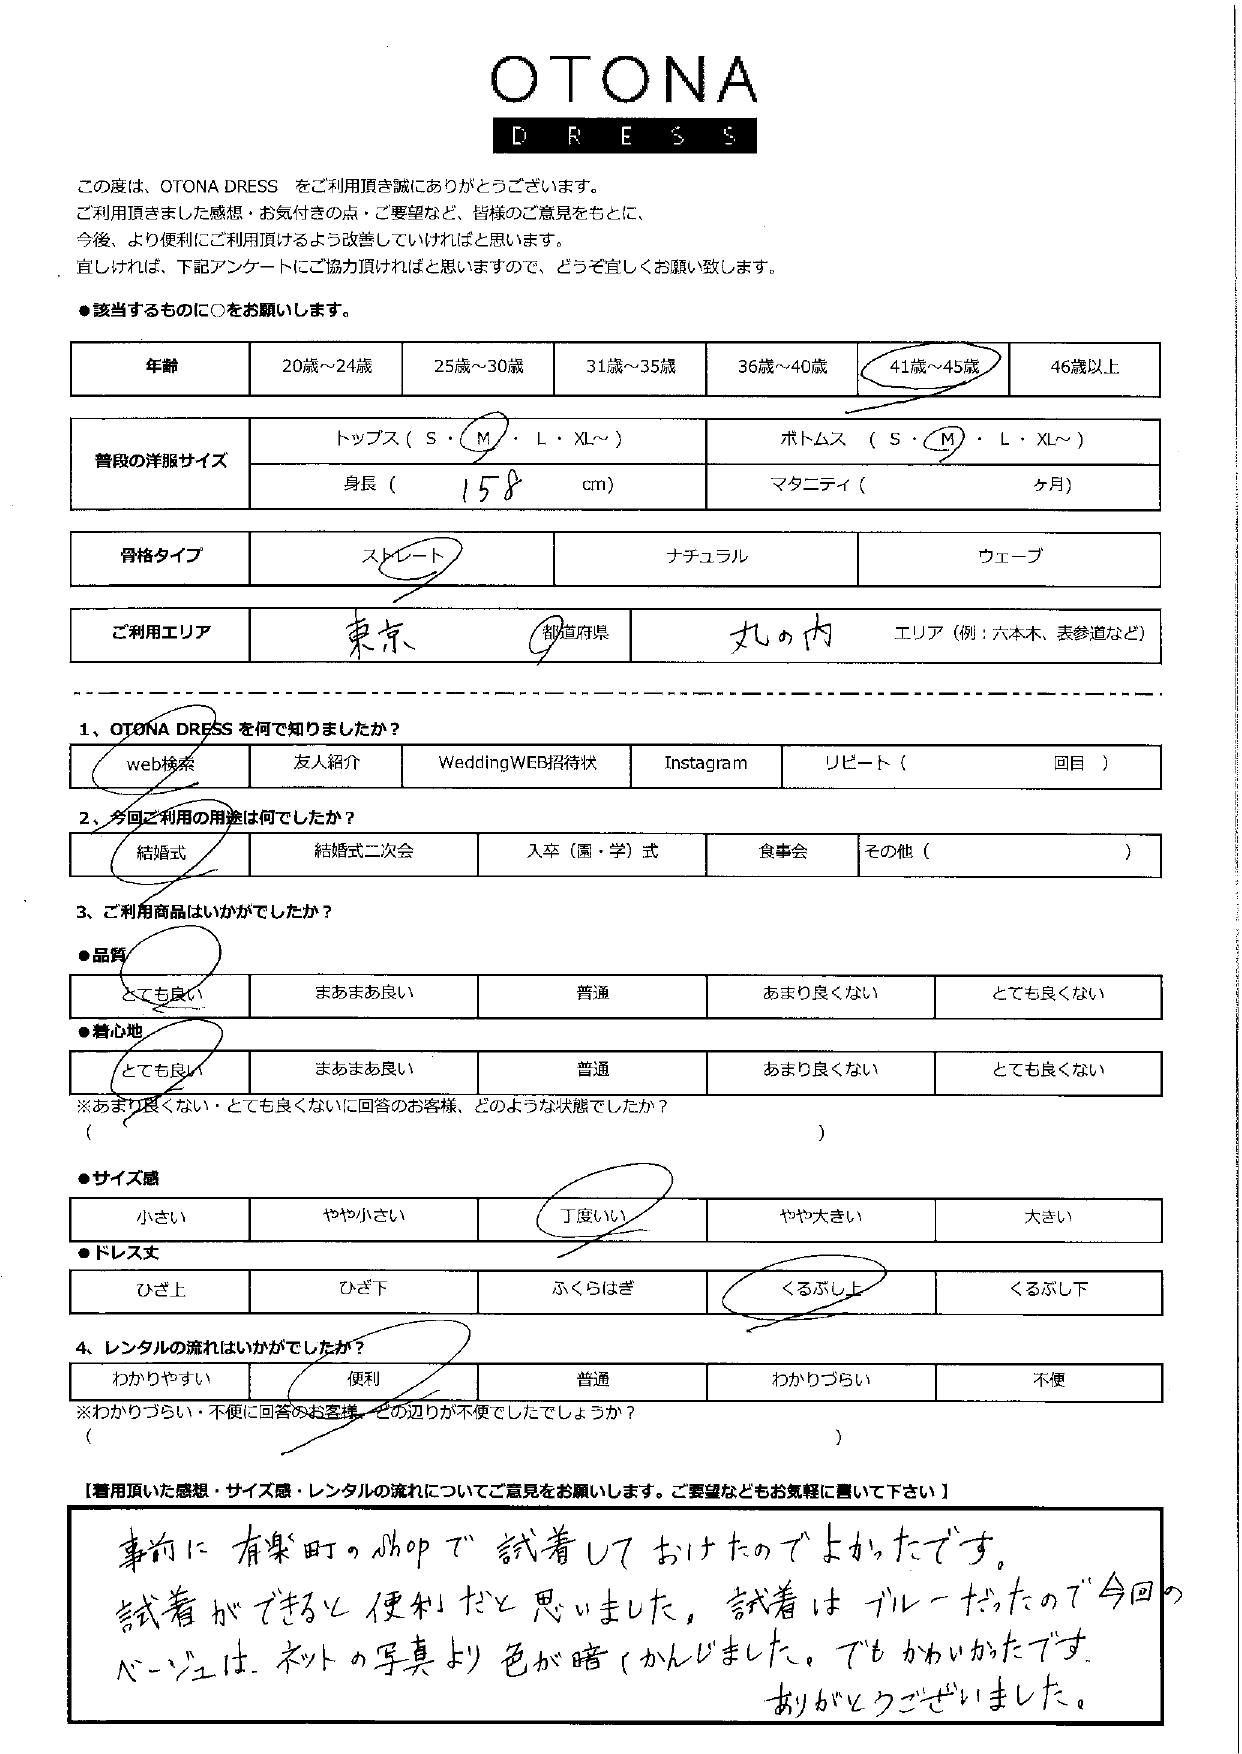 OTONA
DRESS
この度は、OTONA DRESS　をご利用頂き誠にありがとうございます。
ご利用頂きました感想・お気付きの点・ご要望など、皆様のご意見をもとに、
今後、より便利にご利用頂けるよう改善していければと思います。
宜しければ、下記アンケートにご協力頂ければと思いますので、どうぞ宜しくお願い致します。
●該当するものに○をお願いします。
年齢 20歳～24歳 25歳～30歳 31歳～35歳 36歳～40歳 41歳～45歳 46歳以上
普段の洋服サイズ トップス（ S ・ M ・ L ・ XL～ ） ボトムス （ S ・ M ・ L ・ XL～ ）
身長（ 158 cm） マタニティ（ ケ月）
骨格タイプ ストレート ナチュラル ウェーブ
ご利用エリア 東京 都道府県 丸の内 エリア（例：六本木、表参道など）
1、OTONA DRESS を何で知りましたか？
web検索 友人紹介 WeddingWEB招待状 Instagram リピート（ 回目 ）
2、今回ご利用の用途は何でしたか？
結婚式 結婚式二次会 入卒（園・学）式 食事会 その他（ ）
3、ご利用商品はいかがでしたか？
●品質
とても良い まあまあ良い 普通 あまり良くない とても良くない
●着心地
とても良い まあまあ良い 普通 あまり良くない とても良くない
※あまり良くない・とても良くないに回答のお客様、どのような状態でしたか？
（ ）
●サイズ感
小さい やや小さい 丁度いい やや大きい 大きい
●ドレス丈
ひざ上 ひざ下 ふくらはぎ くるぶし上 くるぶし下
4、レンタルの流れはいかがでしたか？
わかりやすい 便利 普通 わかりづらい 不便
※わかりづらい・不便に回答のお客様、どの辺りが不便でしたでしょうか？
（ ）
【着用頂いた感想・サイズ感・レンタルの流れについてご意見をお願いします。ご要望などもお気軽に書いて下さい】
事前に 有楽町のshopで 試着しておけたのでよかったです。
試着ができると便利だと思いました。試着はブルーだったので今回の
ベージュは、ネットの写真より色が暗くかんじました。でもかわいかったです。
ありがとうございました。